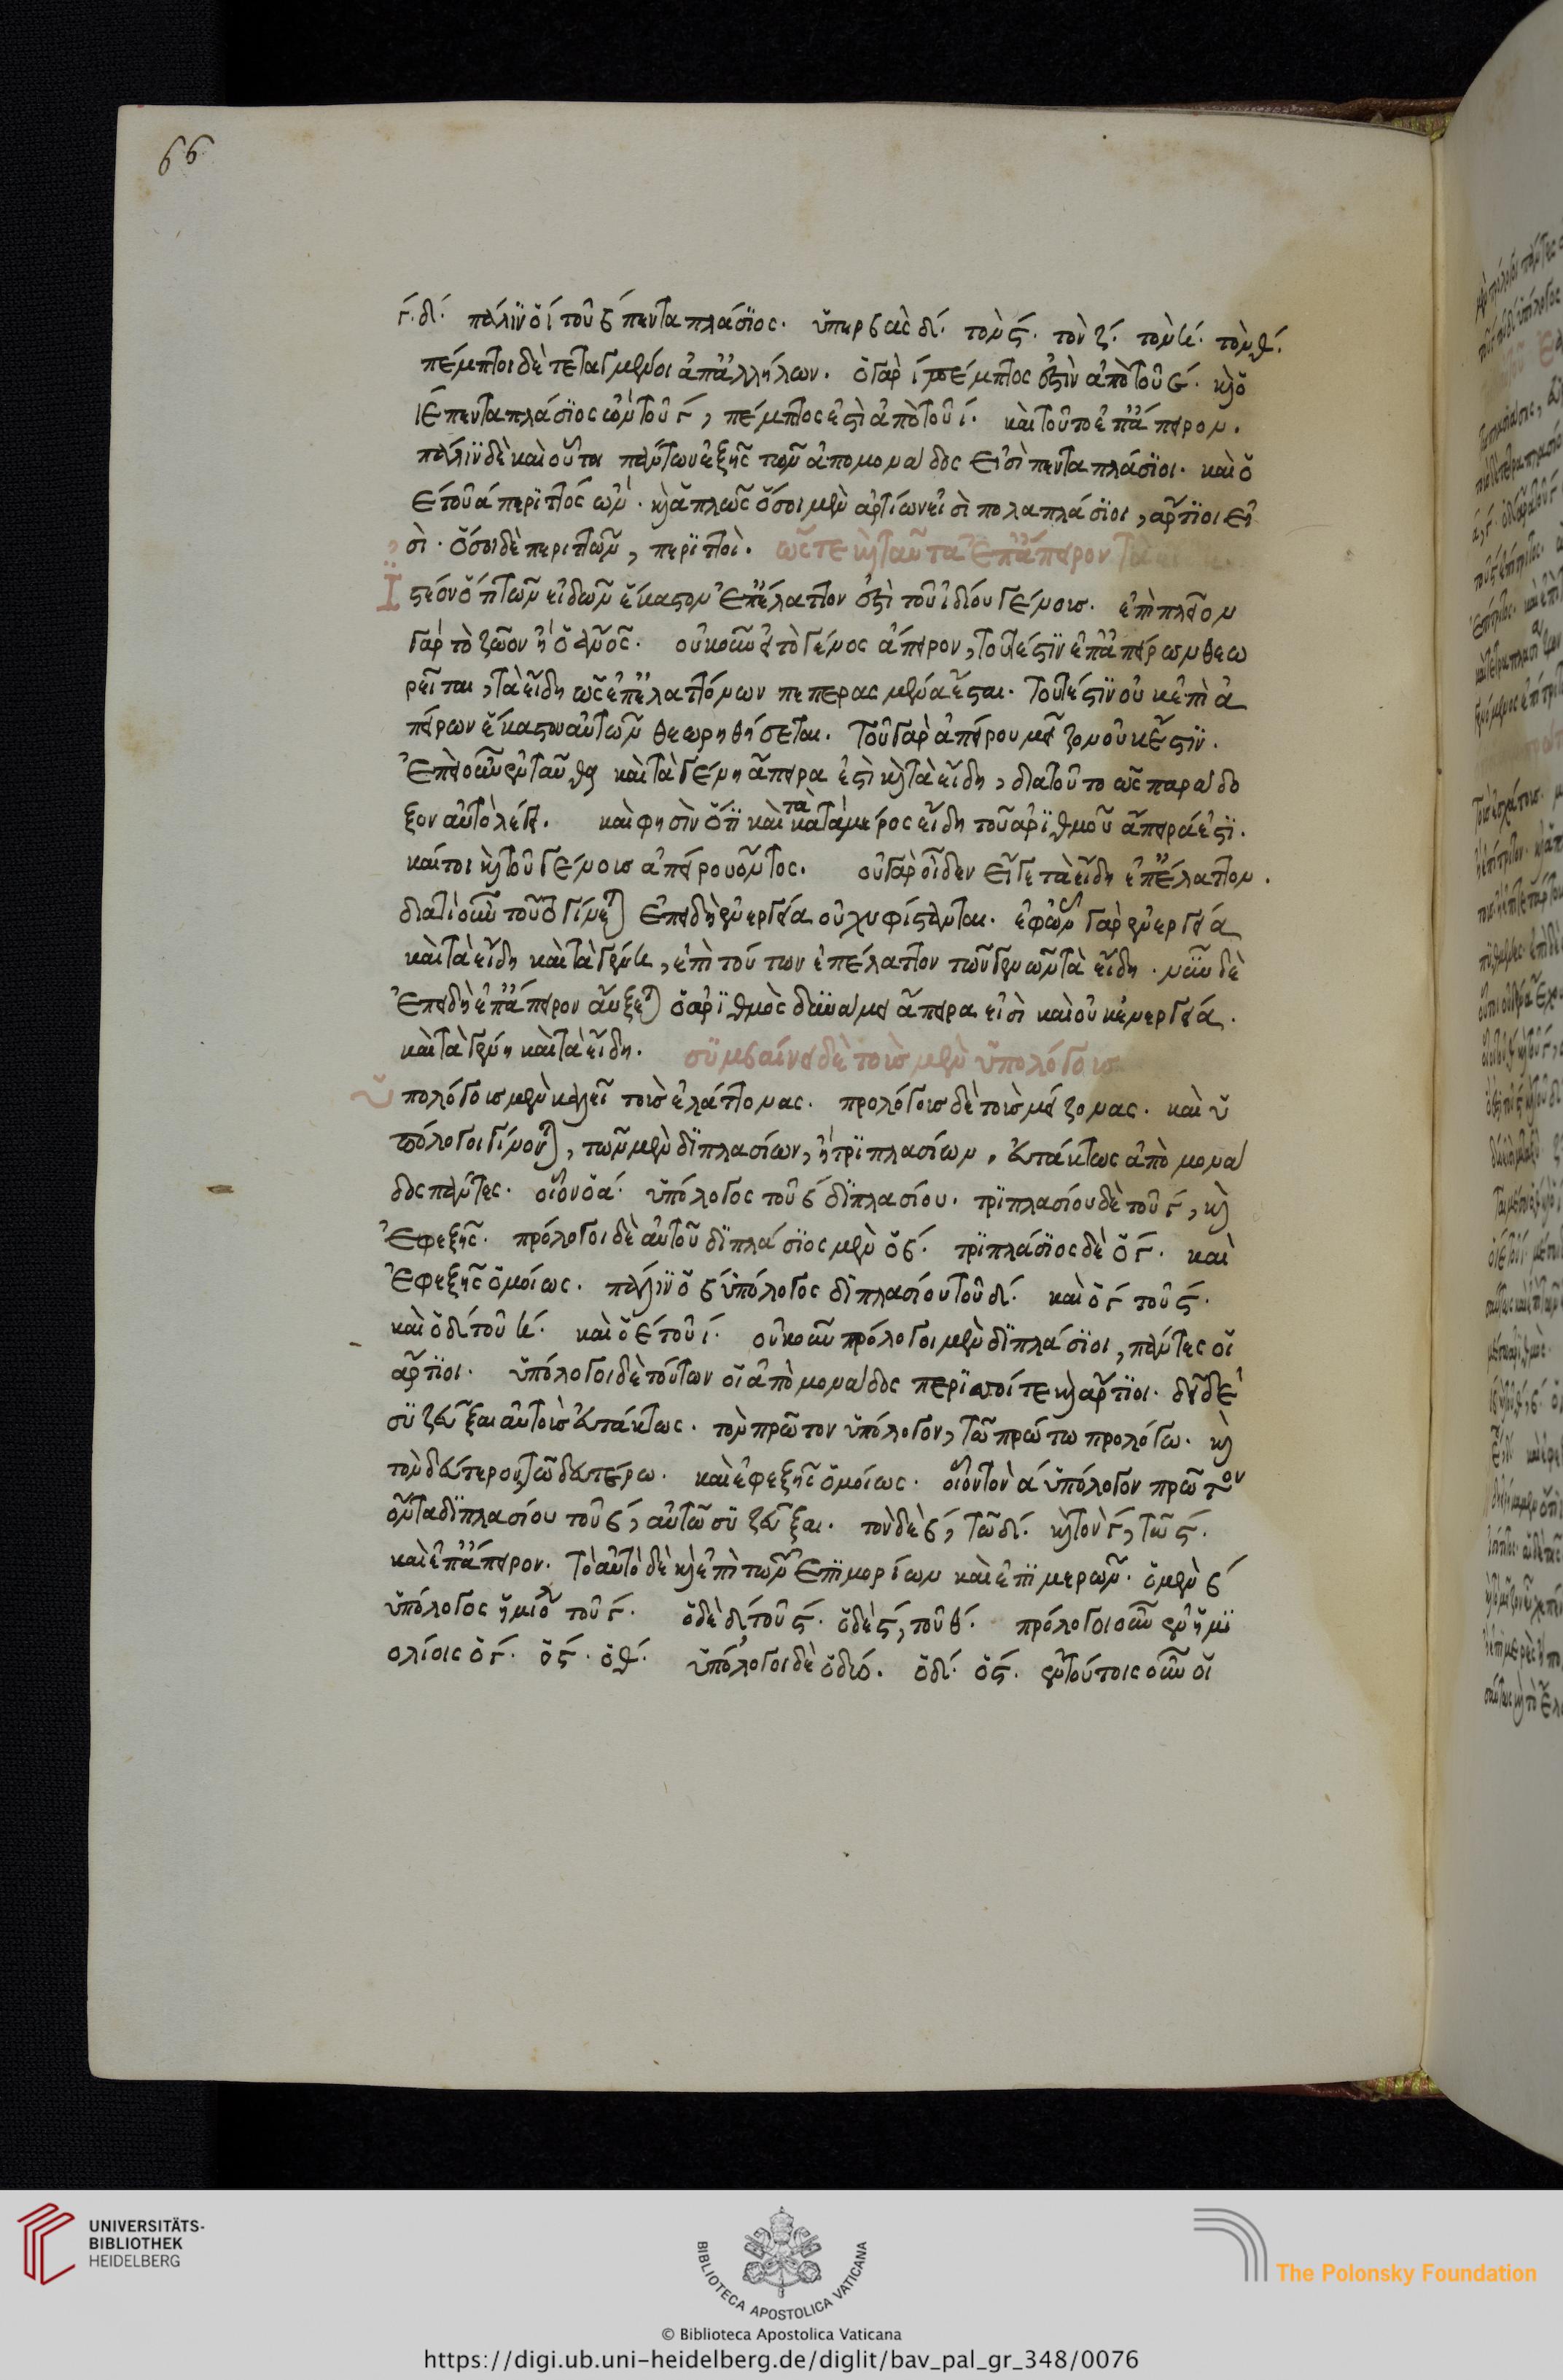 66
γ´. δ´. πάλιν ὁ ι´ τοῦ β´ πενταπλάσιος. ὑπερβὰς δ´. τὸν ϛ´. τὸν ζ´. τὸν η´. τὸν θ´.
πέμπτοι δὲ τεταγμένοι ἀπ' ἀλλήλων. ὁ γὰρ ι´ πέμπτος ἐστὶν ἀπὸ τοῦ ε´. καὶ ὁ
ιε´ πενταπλάσιος ὢν τοῦ γ´, πέμπτος ἐστὶ ἀπὸ τοῦ ι´. καὶ τοῦτο ἐπ' ἄπειρον.
πάλιν δὲ καὶ οὗτοι πάντων ἑξῆς τῶν ἀπὸ μονάδος εἰσὶ πενταπλάσιοι. καὶ ὁ
ε´ τοῦ α´ περιττός ὤν. καὶ ἁπλῶς ὅσοι μὲν ἀρτίων εἰσὶ πολαπλάσιοι, ἄρτιοι εἰ
σὶ. ὅσοι δὲ περιττῶν, περιττοὶ. ὥστε καὶ ταῦτα ἐπ' ἄπειρον
Ἰστέον ὅτι τῶν εἰδῶν ἕκαστον ἐπ' ἔλαττον ἐστὶ τοῦ ἰδίου γένους. ἐπὶ πλέον
γὰρ τὸ ζῶον ἢ ὁ ἄνος. οὐκοῦν εἰ τὸ γένος ἄπειρον, τουτέστιν ἐπ' ἀπείρων θεω
ρεῖται, τὰ εἴδη ὡς ἐπ' ἐλαττόνων πεπερασμένα ἔσται. τουτέστιν οὐκ ἐπὶ ἀ
πείρων ἕκαστον αὐτῶν θεωρηθήσεται. τοῦ γὰρ ἀπείρου μεῖζον οὐκ ἔστιν.
Ἐπεὶ οὖν ἐνταῦθα καὶ τὰ γένη ἄπειρα ἐστὶ καὶ τὰ εἴδη, διὰ τοῦτο ὡς παράδο
ξον αὐτὸ λέγει. καὶ φησὶν ὅτι καὶ τὰ κατὰ μέρος εἴδη τοῦ ἀριθμοῦ ἄπειρά ἐστι.
καίτοι καὶ τοῦ γένους ἀπείρου ὄντος. οὐ γὰρ οἶδεν εἴγε τὰ εἴδη ἐπ' ἔλαττον.
διατί οὖν τοῦτο γίνεται ἐπειδὴ ἐνεργεία οὐχ ὑφίστανται. ἐφ' ὧν γὰρ ἐνεργεία
καὶ τὰ εἴδη καὶ τὰ γένη, ἐπὶ τούτων ἐπ' ἔλαττον τῶν γενῶν τὰ εἴδη. νῦν δὲ
Ἐπειδὴ ἐπ' ἄπειρον αὔξεται ὁ ἀριθμὸς δυνάμει ἄπειρα εἰσὶ καὶ οὐκ ἐνεργεία.
καὶ τὰ γένη καὶ τὰ εἴδη. συμβαίνει δὲ τοῖς μὲν ὑπολόγοις
ὑπολόγοις μὲν καλεῖ τοὺς ἐλάττονας. προλόγοις δὲ τοὺς μείζονας. καὶ ὑ
πόλογοι γίνονται, τῶν μὲν διπλασίων, ἢ τριπλασίων, εὐτάκτως ἀπὸ μονά
δος πάντες. οἷον ὁ α´. ὑπόλογος τοῦ β´ διπλασίου. τριπλασίου δὲ τοῦ γ´, καὶ
Ἐφεξῆς. πρόλογοι δὲ αὐτοῦ διπλάσιος μὲν ὁ β´. τριπλάσιος δὲ ὁ γ´. καὶ
Ἐφεξῆς ὁμοίως. πάλιν ὁ β´ ὑπόλογος διπλασίου τοῦ δ´. καὶ ὁ γ´ τοῦ ϛ´.
καὶ ὁ δ´ τοῦ η´. καὶ ὁ ε´ τοῦ ι´. οὐκοῦν πρόλογοι μὲν διπλάσιοι, πάντες οἱ
ἄρτιοι. ὑπόλογοι δὲ τούτων οἱ ἀπὸ μονάδος περιττοί τε καὶ ἄρτιοι. δεῖ δὲ
συζεῦξαι αὐτοὺς εὐτάκτως. τὸν πρῶτον ὑπόλογον, τῶ πρώτω προλόγω. καὶ
τὸν δεύτερον, τῶ δευτέρω. καὶ ἐφεξῆς ὁμοίως. οἷον τὸν α´ ὑπόλογον πρῶτον
ὄντα διπλασίου τοῦ β´, αὐτῶ συζεῦξαι. τὸν δὲ β´, τῶ δ´. καὶ τὸν γ´, τῶ ϛ´.
καὶ ἐπ' ἄπειρον. τὸ αὐτὸ δὲ καὶ ἐπὶ τῶν ἐπιμορίων καὶ ἐπιμερῶν. ὁ μὲν β´
ὑπόλογος ἡμιολ τοῦ γ´. ὁ δὲ δ´, τοῦ ϛ´. ὁ δὲ ϛ´, τοῦ θ´. πρόλογοι οὖν ἐν ἡμι
ολίοις ὁ γ´. ὁ ϛ´. ὁ θ´. ὑπόλογοι δὲ ὁ δύο. ὁ δ´. ὁ ϛ´. ἐν τούτοις οὖν οἱ
UNIVERSITÄTS-
BIBLIOTHEK
HEIDELBERG
BIBLIOTECA APOSTOLICA VATICANA
The Polonsky Foundation
© Biblioteca Apostolica Vaticana
https://digi.ub.uni-heidelberg.de/diglit/bav_pal_gr_348/0076